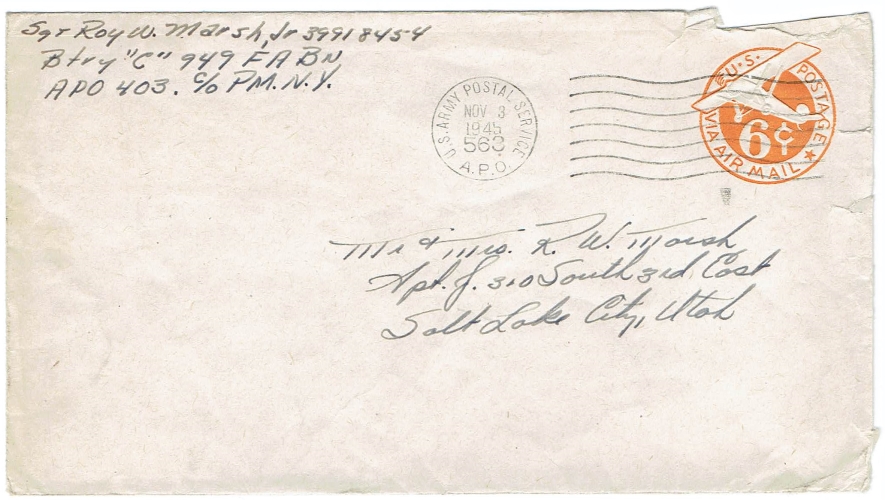 Sgt Roy W. Marsh, Jr 39918454
Btry "C" 949 F A Bn
APO 403. c/o PM. N.Y.
U.S. ARMY POSTAL SERVICE
NOV 3
1945
563
A.P.O.
U.S. POSTAGE
6¢
VIA AIR MAIL
Mr & Mrs. R. W. Marsh
Apt. J. 310 South 3rd East
Salt Lake City, Utah